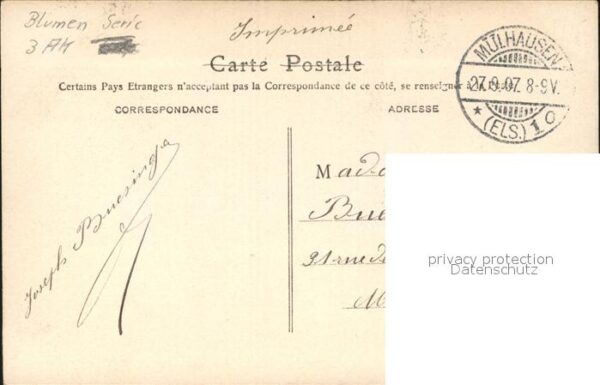 Blumen Serie
3 AK
Imprimée
Carte Postale
Certains Pays Etrangers n'acceptant pas la Correspondance de ce côté, se renseigner à la Poste
CORRESPONDANCE
ADRESSE
MÜLHAUSEN
27.9.07. 8-9V.
* (ELS.) 1 c
Joseph Buesinga
Mada
Bue
31 rue d
M
privacy protection
Datenschutz